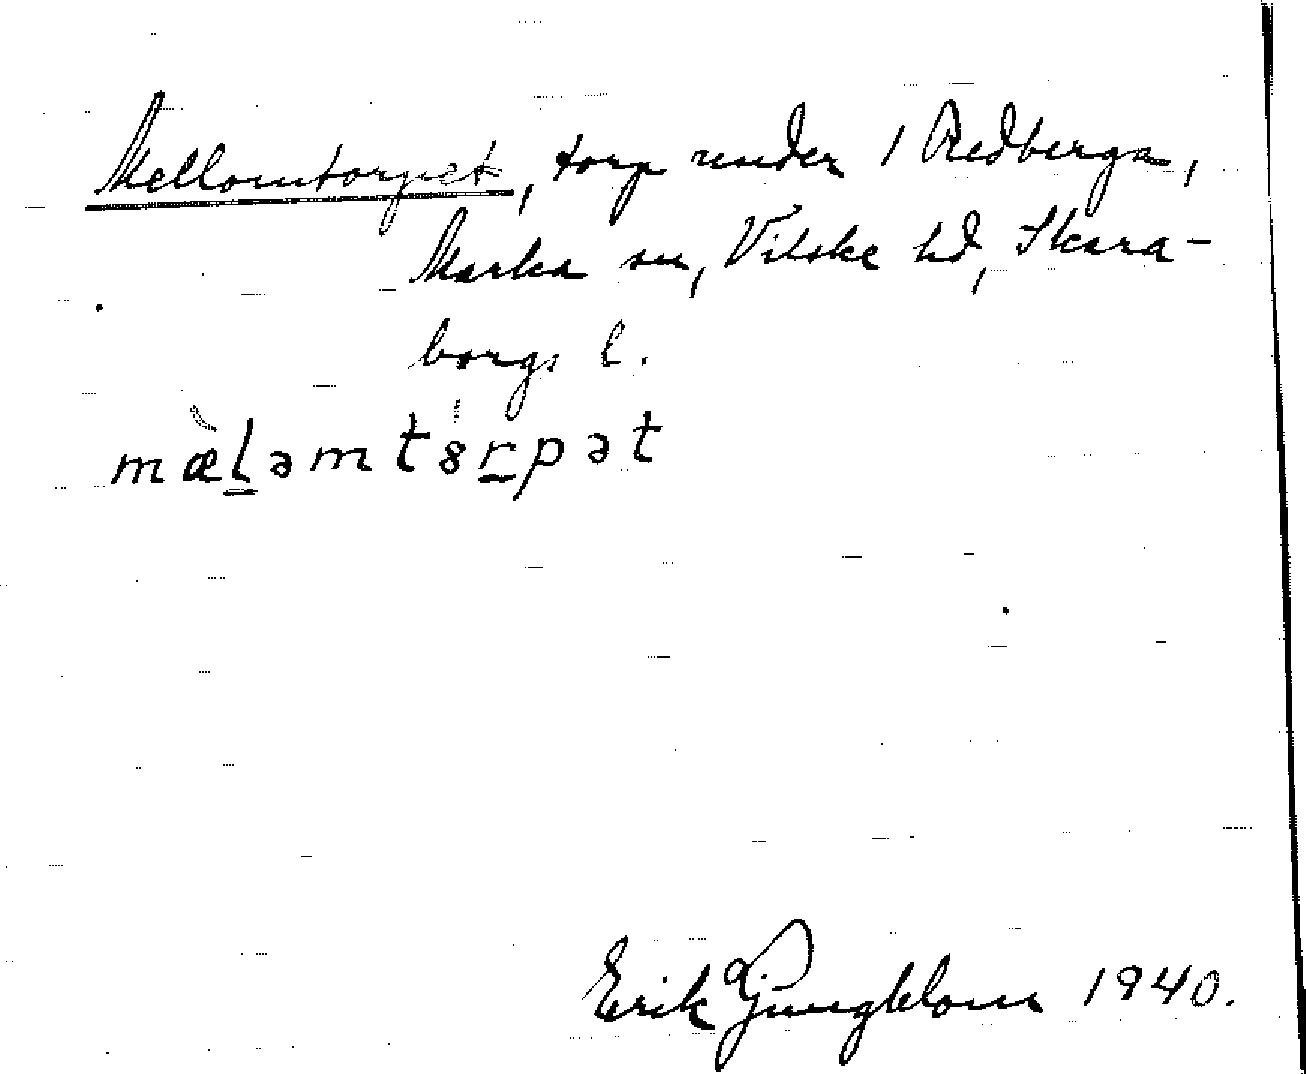 Mellomtorpet, torp under 1 Redberga,
Marka sn, Vilske hd, Skara-
borgs l.
mæ̀ḻəmtȣṟpət
Erik Ljungblom 1940.